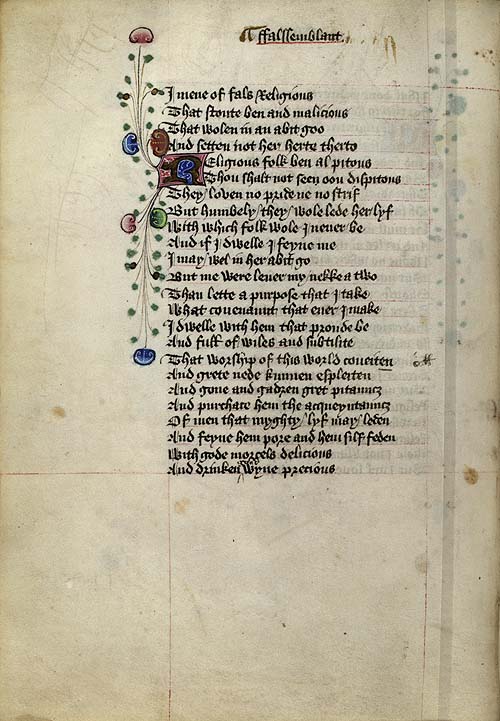 ffalssemblant.
I mene of fals Religious
That stoute ben and malicious
That wolen in an abit goo
And setten not her herte therto
Religious folk ben al pitous
Thou shalt not seen oon dispitous
They loven no pride ne no strif
But humbely they wole lede her lyf
With which folk wole I never be
And if I dwelle I feyne me
I may wel in her abit go
But me were lever my nekke a two
Than lette a purpose that I take
What covenaunt that ever I make
I dwelle with hem that proude be
And full of wiles and subtilite
That worship of this world coueiten
And grete nede kunnen espleiten
And gone and gadren gret pitauncz
And purchace hem the acqueyntauncz
Of men that myghty lyf may leden
And feyne hem pore and hem silf feden
With gode morcels delicious
And drinken wyne precious